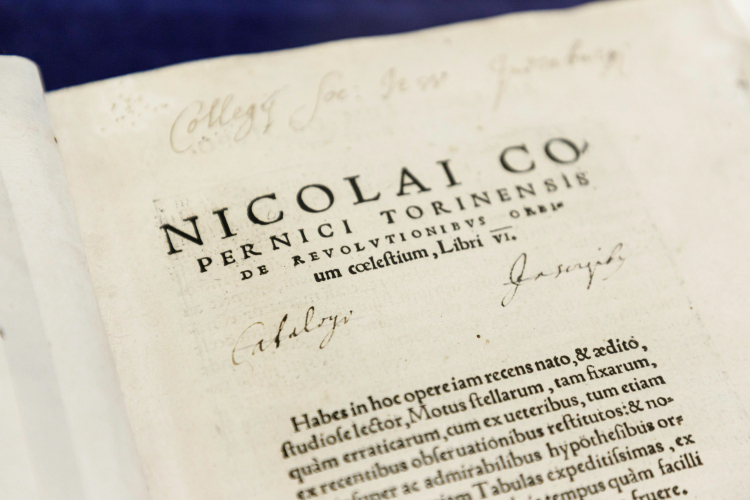 Collegij Soc: Jesu Judenburgi
NICOLAI CO
PERNICI TORINENSIS
DE REVOLVTIONIBVS ORBI-
um cœleſtium, Libri VI.
Catalogo Inscriptus
Habes in hoc opere iam recens nato, & ædito,
ſtudioſe lector, Motus ſtellarum, tam fixarum,
quàm erraticarum, cum ex ueteribus, tum etiam
ex recentibus obſeruationibus reſtitutos: & no-
ſuper ac admirabilibus hypotheſibus or-
Tabulas expeditiſsimas, ex
tempus quàm facilli
fruere.